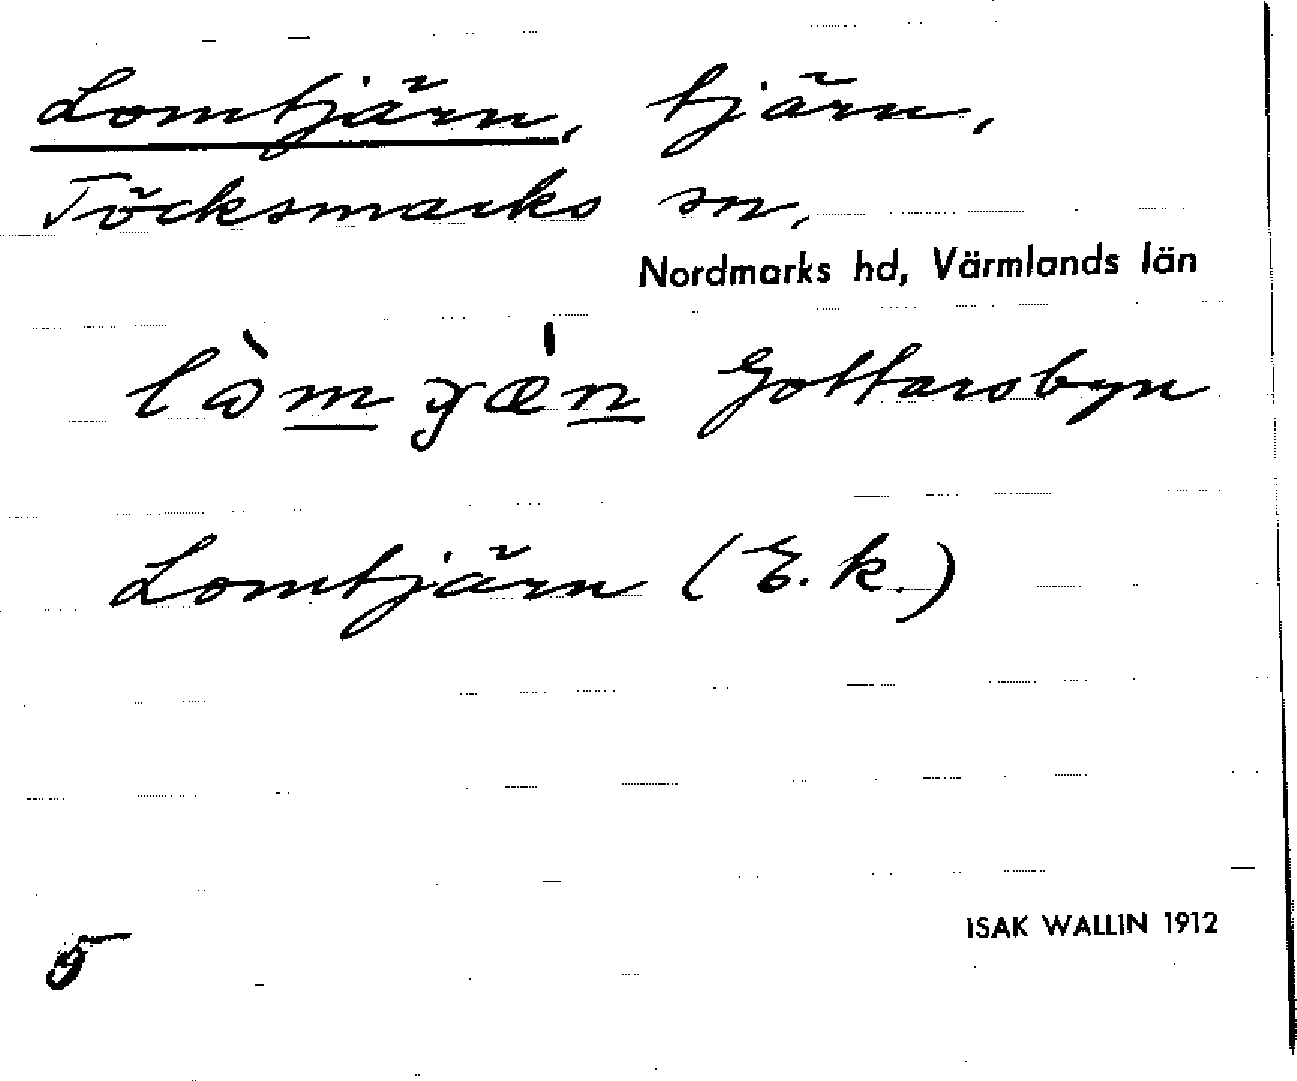 Lomtjärn, tjärn,
Töcksmarks sn,
Nordmarks hd, Värmlands län
Gottarsbyn
Lomtjärn (E.k.)
ISAK WALLIN 1912
5